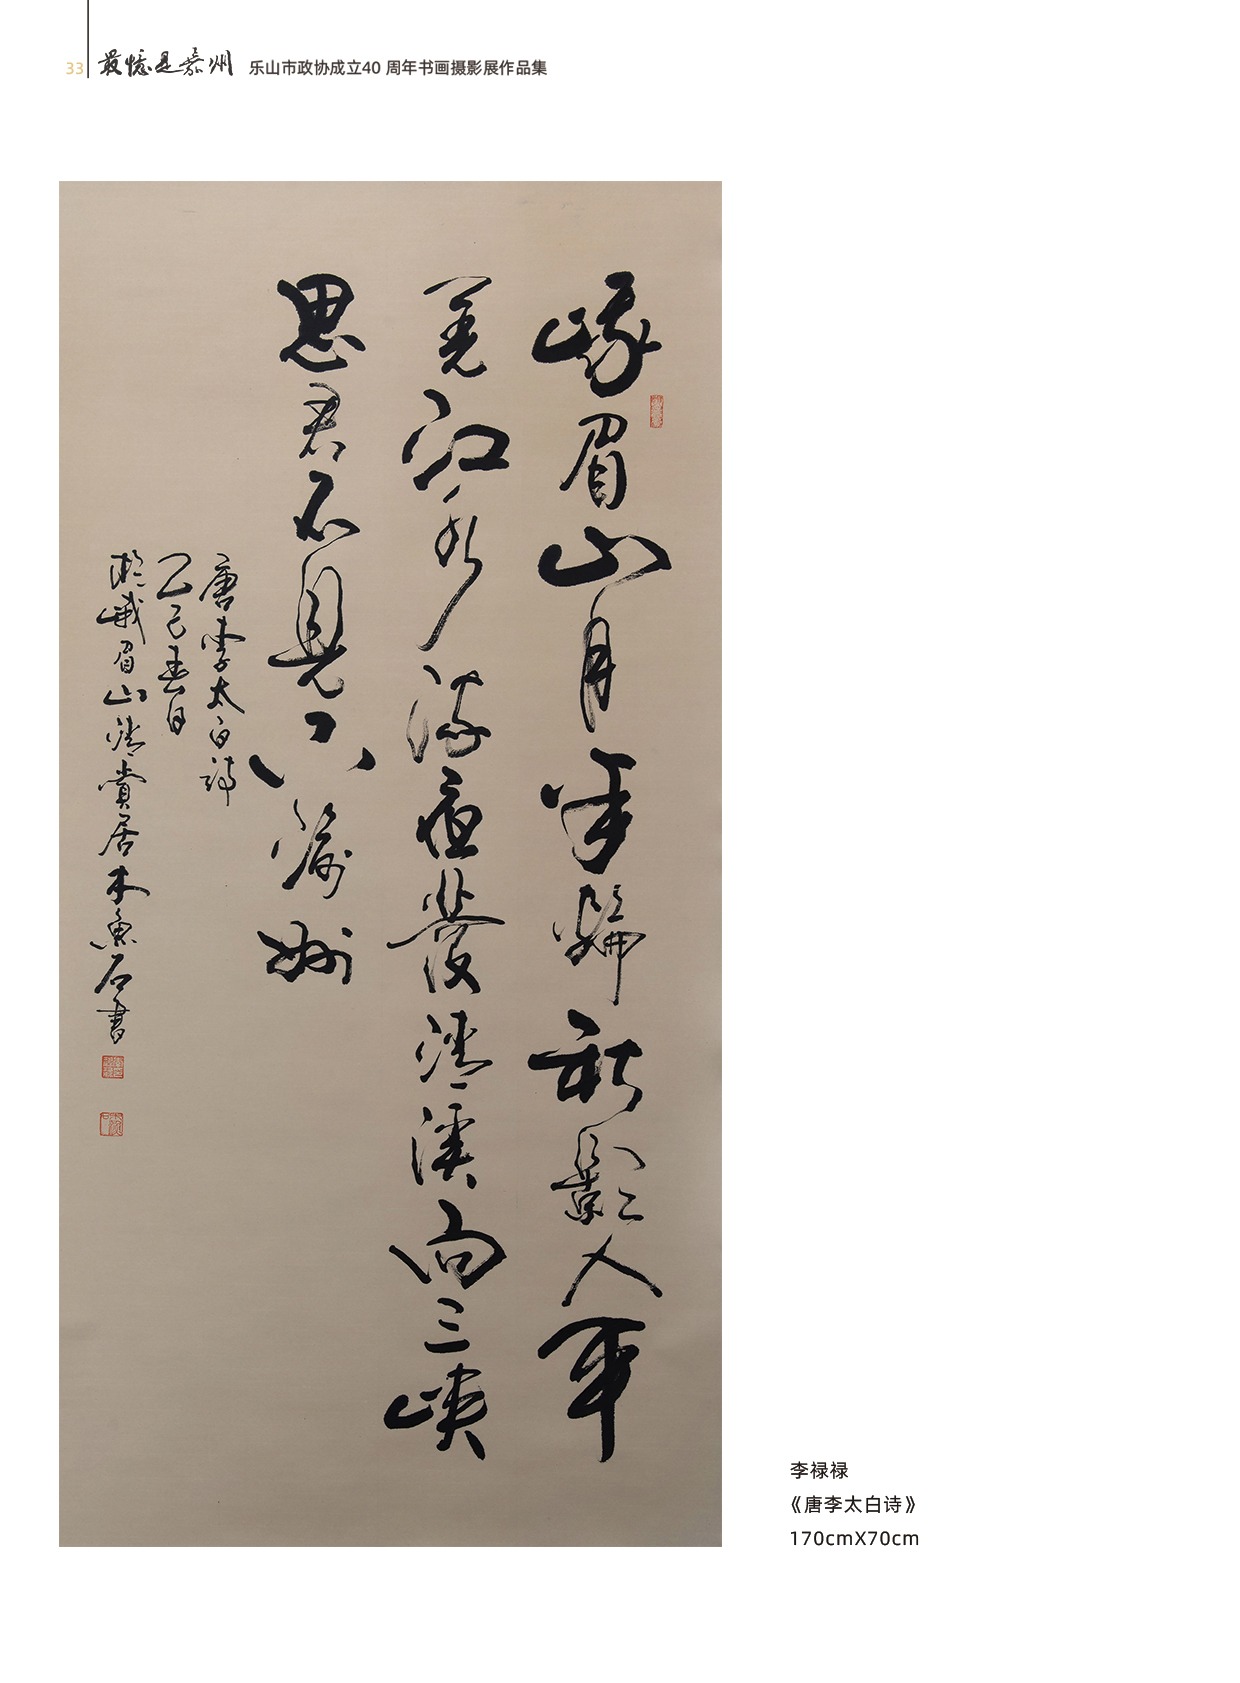 33 最憶是嘉州 乐山市政协成立40 周年书画摄影展作品集
峨眉山月半輪秋影人平
羌江水流夜發清溪向三峽
思君不見下渝州
唐李太白詩
乙巳春日
於峨眉山清賞居木魚石書
李禄禄
《唐李太白诗》
170cmX70cm